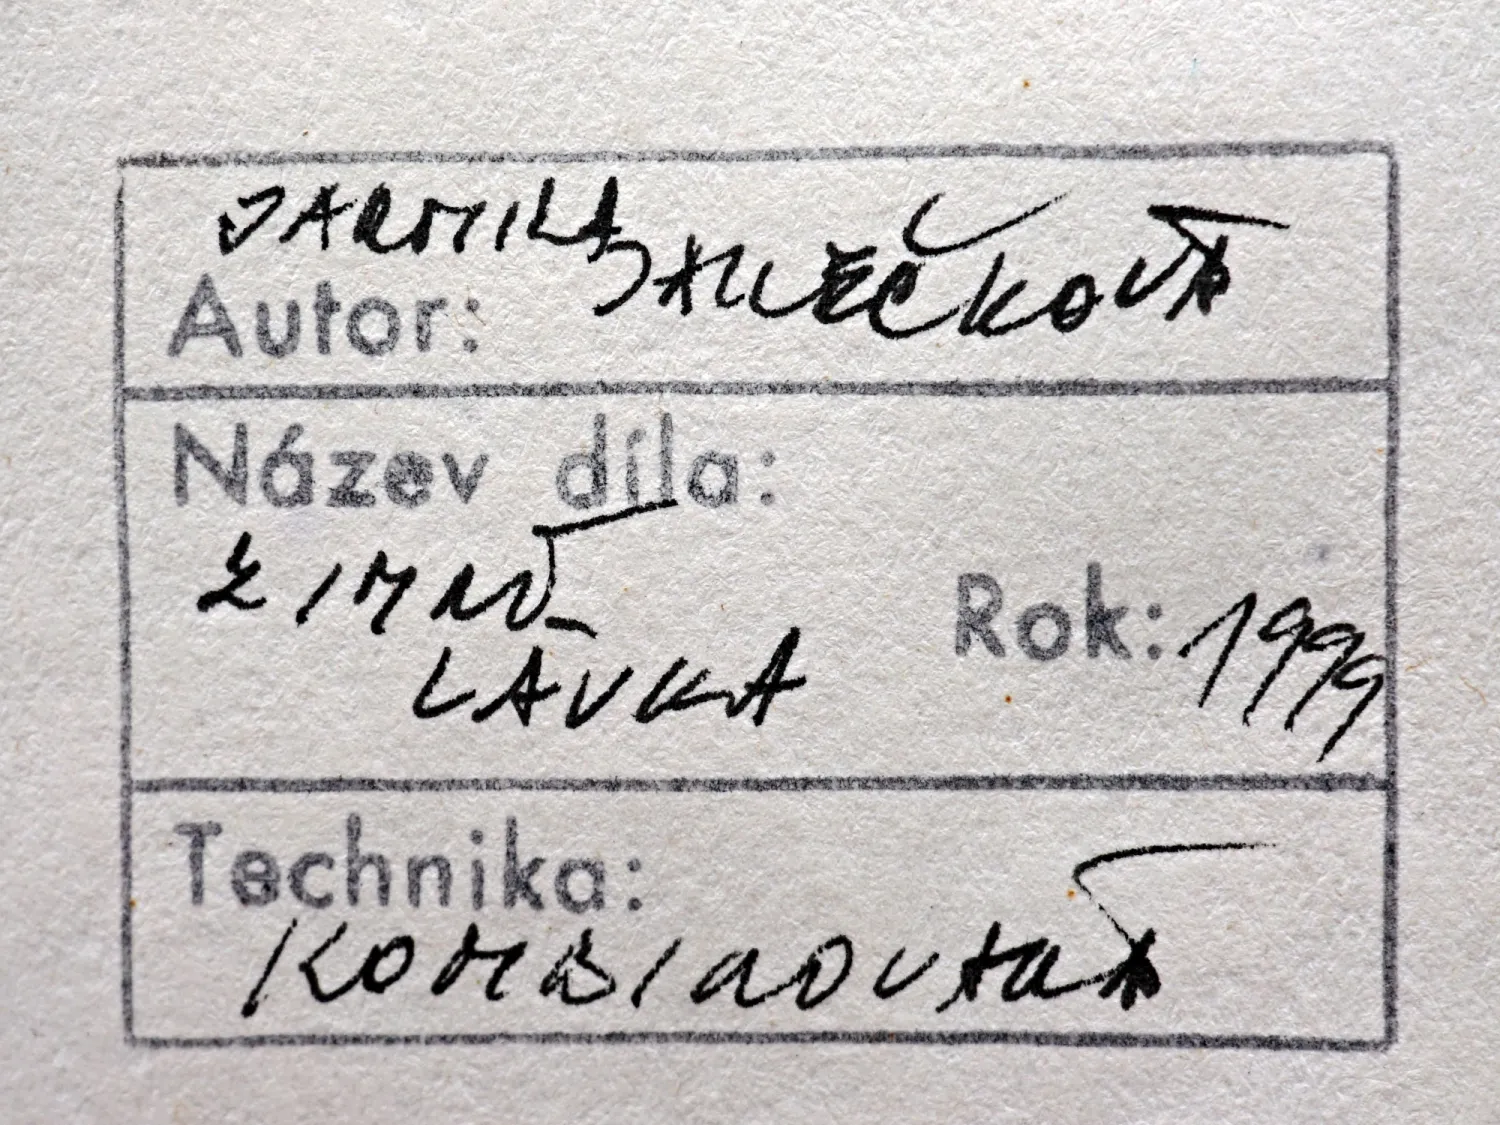 JARMILA JANEČKOVÁ
Autor:
Název díla:
ZIMNÍ
LÁVKA
Rok: 1999
Technika:
KOMBINOVANÁ